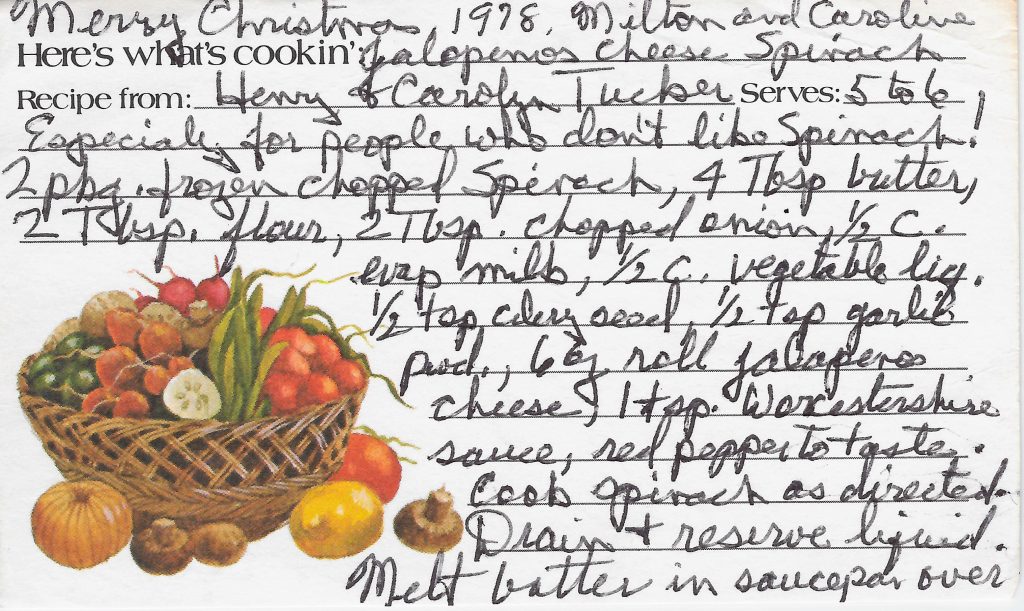 Merry Christmas, 1978, Milton and Caroline
Here's what's cookin': Jalapenos cheese Spinach
Recipe from: Henry & Carolyn Tucker Serves: 5 to 6
Especially for people who don't like Spinach!
2 pkg. frozen chopped Spinach, 4 Tbsp butter,
2 Tbsp. flour, 2 Tbsp. chopped onion, 1/2 c.
evap milk, 1/2 c. vegetable liq.
1/2 tsp celery seed, 1/2 tsp garlic
pwd., 6 oz roll jalapenos
cheese, 1 tsp. Worcestershire
sauce, red pepper to taste.
Cook Spinach as directed.
Drain + reserve liquid.
Melt butter in saucepan over